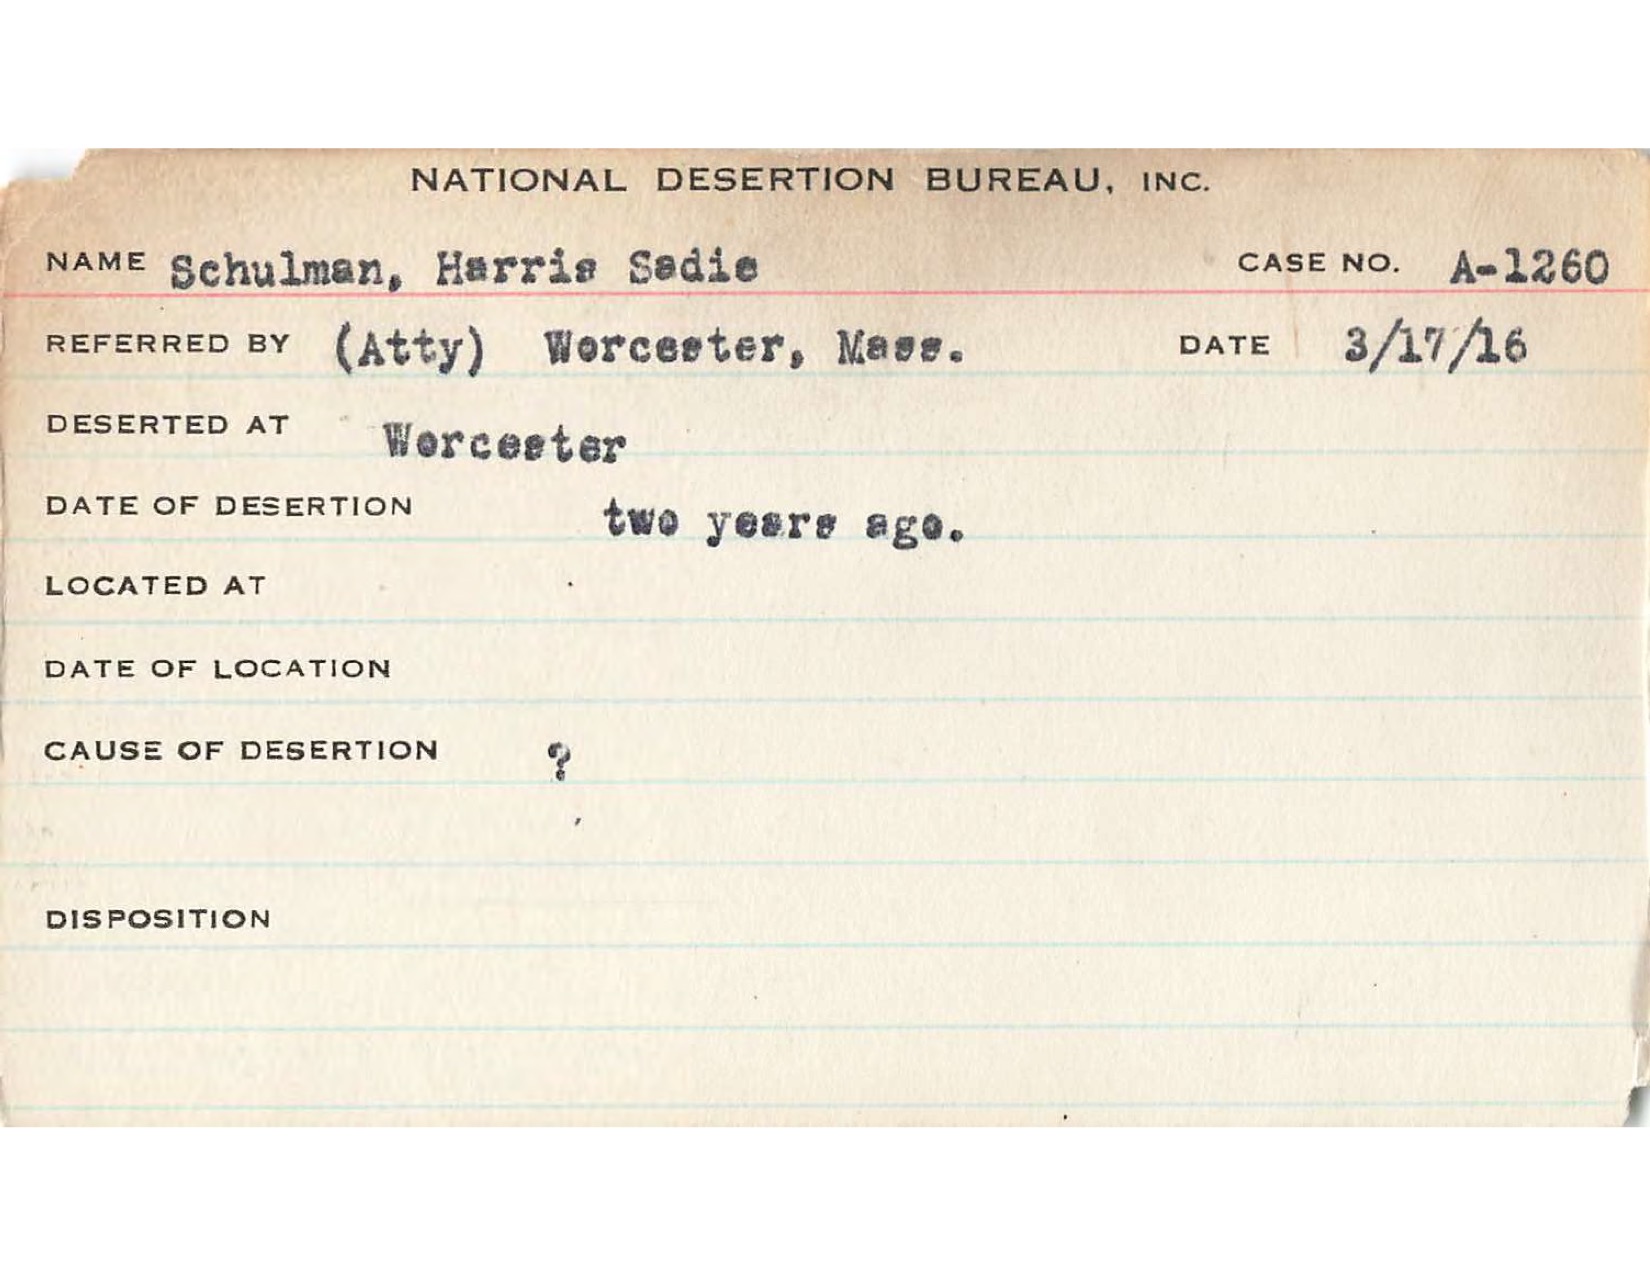 NATIONAL DESERTION BUREAU, INC.
NAME Schulman, Harris Sadie CASE NO. A-1260
REFERRED BY (Atty) Worcester, Mass. DATE 3/17/16
DESERTED AT Worcester
DATE OF DESERTION two years ago.
LOCATED AT
DATE OF LOCATION
CAUSE OF DESERTION ?
DISPOSITION